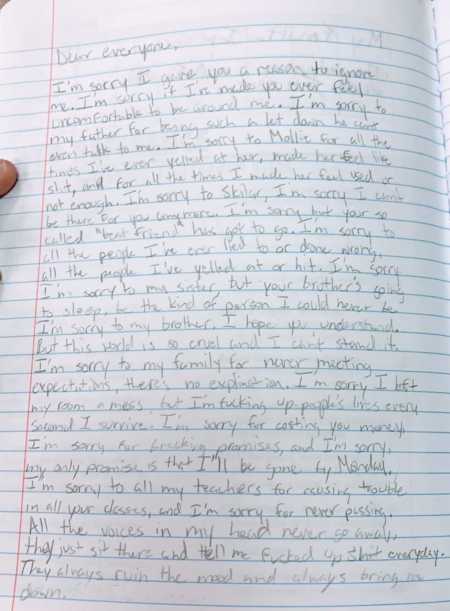 Dear everyone,
I'm sorry I gave you a reason to ignore
me. I'm sorry if I've made you ever feel
uncomfortable to be around me. I'm sorry to
my father for being such a let down he cant
even talk to me. I'm sorry to Mollie for all the
times I've ever yelled at her, made her feel like
shit, and for all the times I made her feel used or
not enough. I'm sorry to Skilar, I'm sorry I cant
be there for you anymore. I'm sorry but your so
called "best friend" has got to go. I'm sorry to
all the people I've ever lied to or done wrong,
all the people I've yelled at or hit. I'm sorry
I'm sorry to my sister but your brother's going
to sleep, be the kind of person I could never be
I'm sorry to my brother, I hope you understand.
But this world is so cruel and I can't stand it.
I'm sorry to my family for never meeting
expectations, there's no explination. I'm sorry I left
my room a mess but I'm fucking up people's lives every
second I survive. I'm sorry for costing you money
I'm sorry for breaking promises, and I'm sorry,
my only promise is that I'll be gone by Monday.
I'm sorry to all my teachers for causing trouble
in all your classes, and I'm sorry for never passing.
All the voices in my head never go away,
they just sit there and tell me fucked up shit everyday.
They always ruin the mood and always bring me
down.